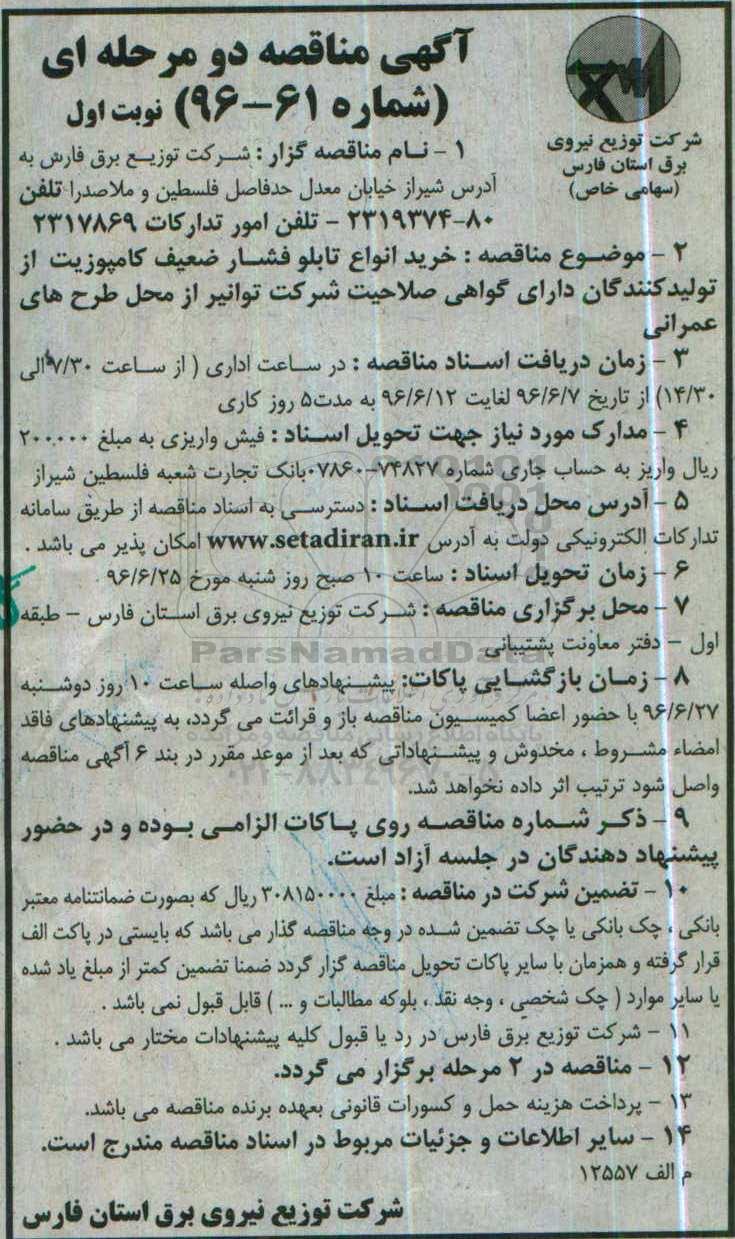 آگهی مناقصه دو مرحله ای
(شماره ۶۱-۹۶) نوبت اول
شرکت توزیع نیروی
برق استان فارس
(سهامی خاص)
۱ - نام مناقصه گزار : شرکت توزیع برق فارس به
آدرس شیراز خیابان معدل حدفاصل فلسطین و ملاصدرا تلفن
۸۰-۲۳۱۹۳۷۴ - تلفن امور تدارکات ۲۳۱۷۸۶۹
۲ - موضوع مناقصه : خرید انواع تابلو فشار ضعیف کامپوزیت از
تولیدکنندگان دارای گواهی صلاحیت شرکت توانیر از محل طرح های
عمرانی
۳ - زمان دریافت اسناد مناقصه : در ساعت اداری ( از ساعت ۷/۳۰ الی
۱۴/۳۰) از تاریخ ۹۶/۶/۷ لغایت ۹۶/۶/۱۲ به مدت۵ روز کاری
۴ - مدارک مورد نیاز جهت تحویل اسناد : فیش واریزی به مبلغ ۲۰۰.۰۰۰
ریال واریز به حساب جاری شماره ۷۴۸۲۷-۰۷۸۶۰بانک تجارت شعبه فلسطین شیراز
۵ - آدرس محل دریافت اسناد : دسترسی به اسناد مناقصه از طریق سامانه
تدارکات الکترونیکی دولت به آدرس www.setadiran.ir امکان پذیر می باشد .
۶ - زمان تحویل اسناد : ساعت ۱۰ صبح روز شنبه مورخ ۹۶/۶/۲۵
۷ - محل برگزاری مناقصه : شرکت توزیع نیروی برق استان فارس - طبقه
اول - دفتر معاونت پشتیبانی
ParsNamadData
۸ - زمان بازگشایی پاکات: پیشنهادهای واصله ساعت ۱۰ روز دوشنبه
۹۶/۶/۲۷ با حضور اعضا کمیسیون مناقصه باز و قرائت می گردد، به پیشنهادهای فاقد
پایگاه اطلاع رسانی مناقصه و مزایده
امضاء مشروط ، مخدوش و پیشنهاداتی که بعد از موعد مقرر در بند ۶ آگهی مناقصه
واصل شود ترتیب اثر داده نخواهد شد.
۹ - ذکر شماره مناقصه روی پاکات الزامی بوده و در حضور
پیشنهاد دهندگان در جلسه آزاد است.
۱۰ - تضمین شرکت در مناقصه : مبلغ ۳۰۸۱۵۰۰۰۰ ریال که بصورت ضمانتنامه معتبر
بانکی ، چک بانکی یا چک تضمین شده در وجه مناقصه گذار می باشد که بایستی در پاکت الف
قرار گرفته و همزمان با سایر پاکات تحویل مناقصه گزار گردد ضمنا تضمین کمتر از مبلغ یاد شده
یا سایر موارد ( چک شخصی ، وجه نقد ، بلوکه مطالبات و ... ) قابل قبول نمی باشد .
۱۱ - شرکت توزیع برق فارس در رد یا قبول کلیه پیشنهادات مختار می باشد .
۱۲ - مناقصه در ۲ مرحله برگزار می گردد.
۱۳ - پرداخت هزینه حمل و کسورات قانونی بعهده برنده مناقصه می باشد.
۱۴ - سایر اطلاعات و جزئیات مربوط در اسناد مناقصه مندرج است.
م الف ۱۲۵۵۷
شرکت توزیع نیروی برق استان فارس